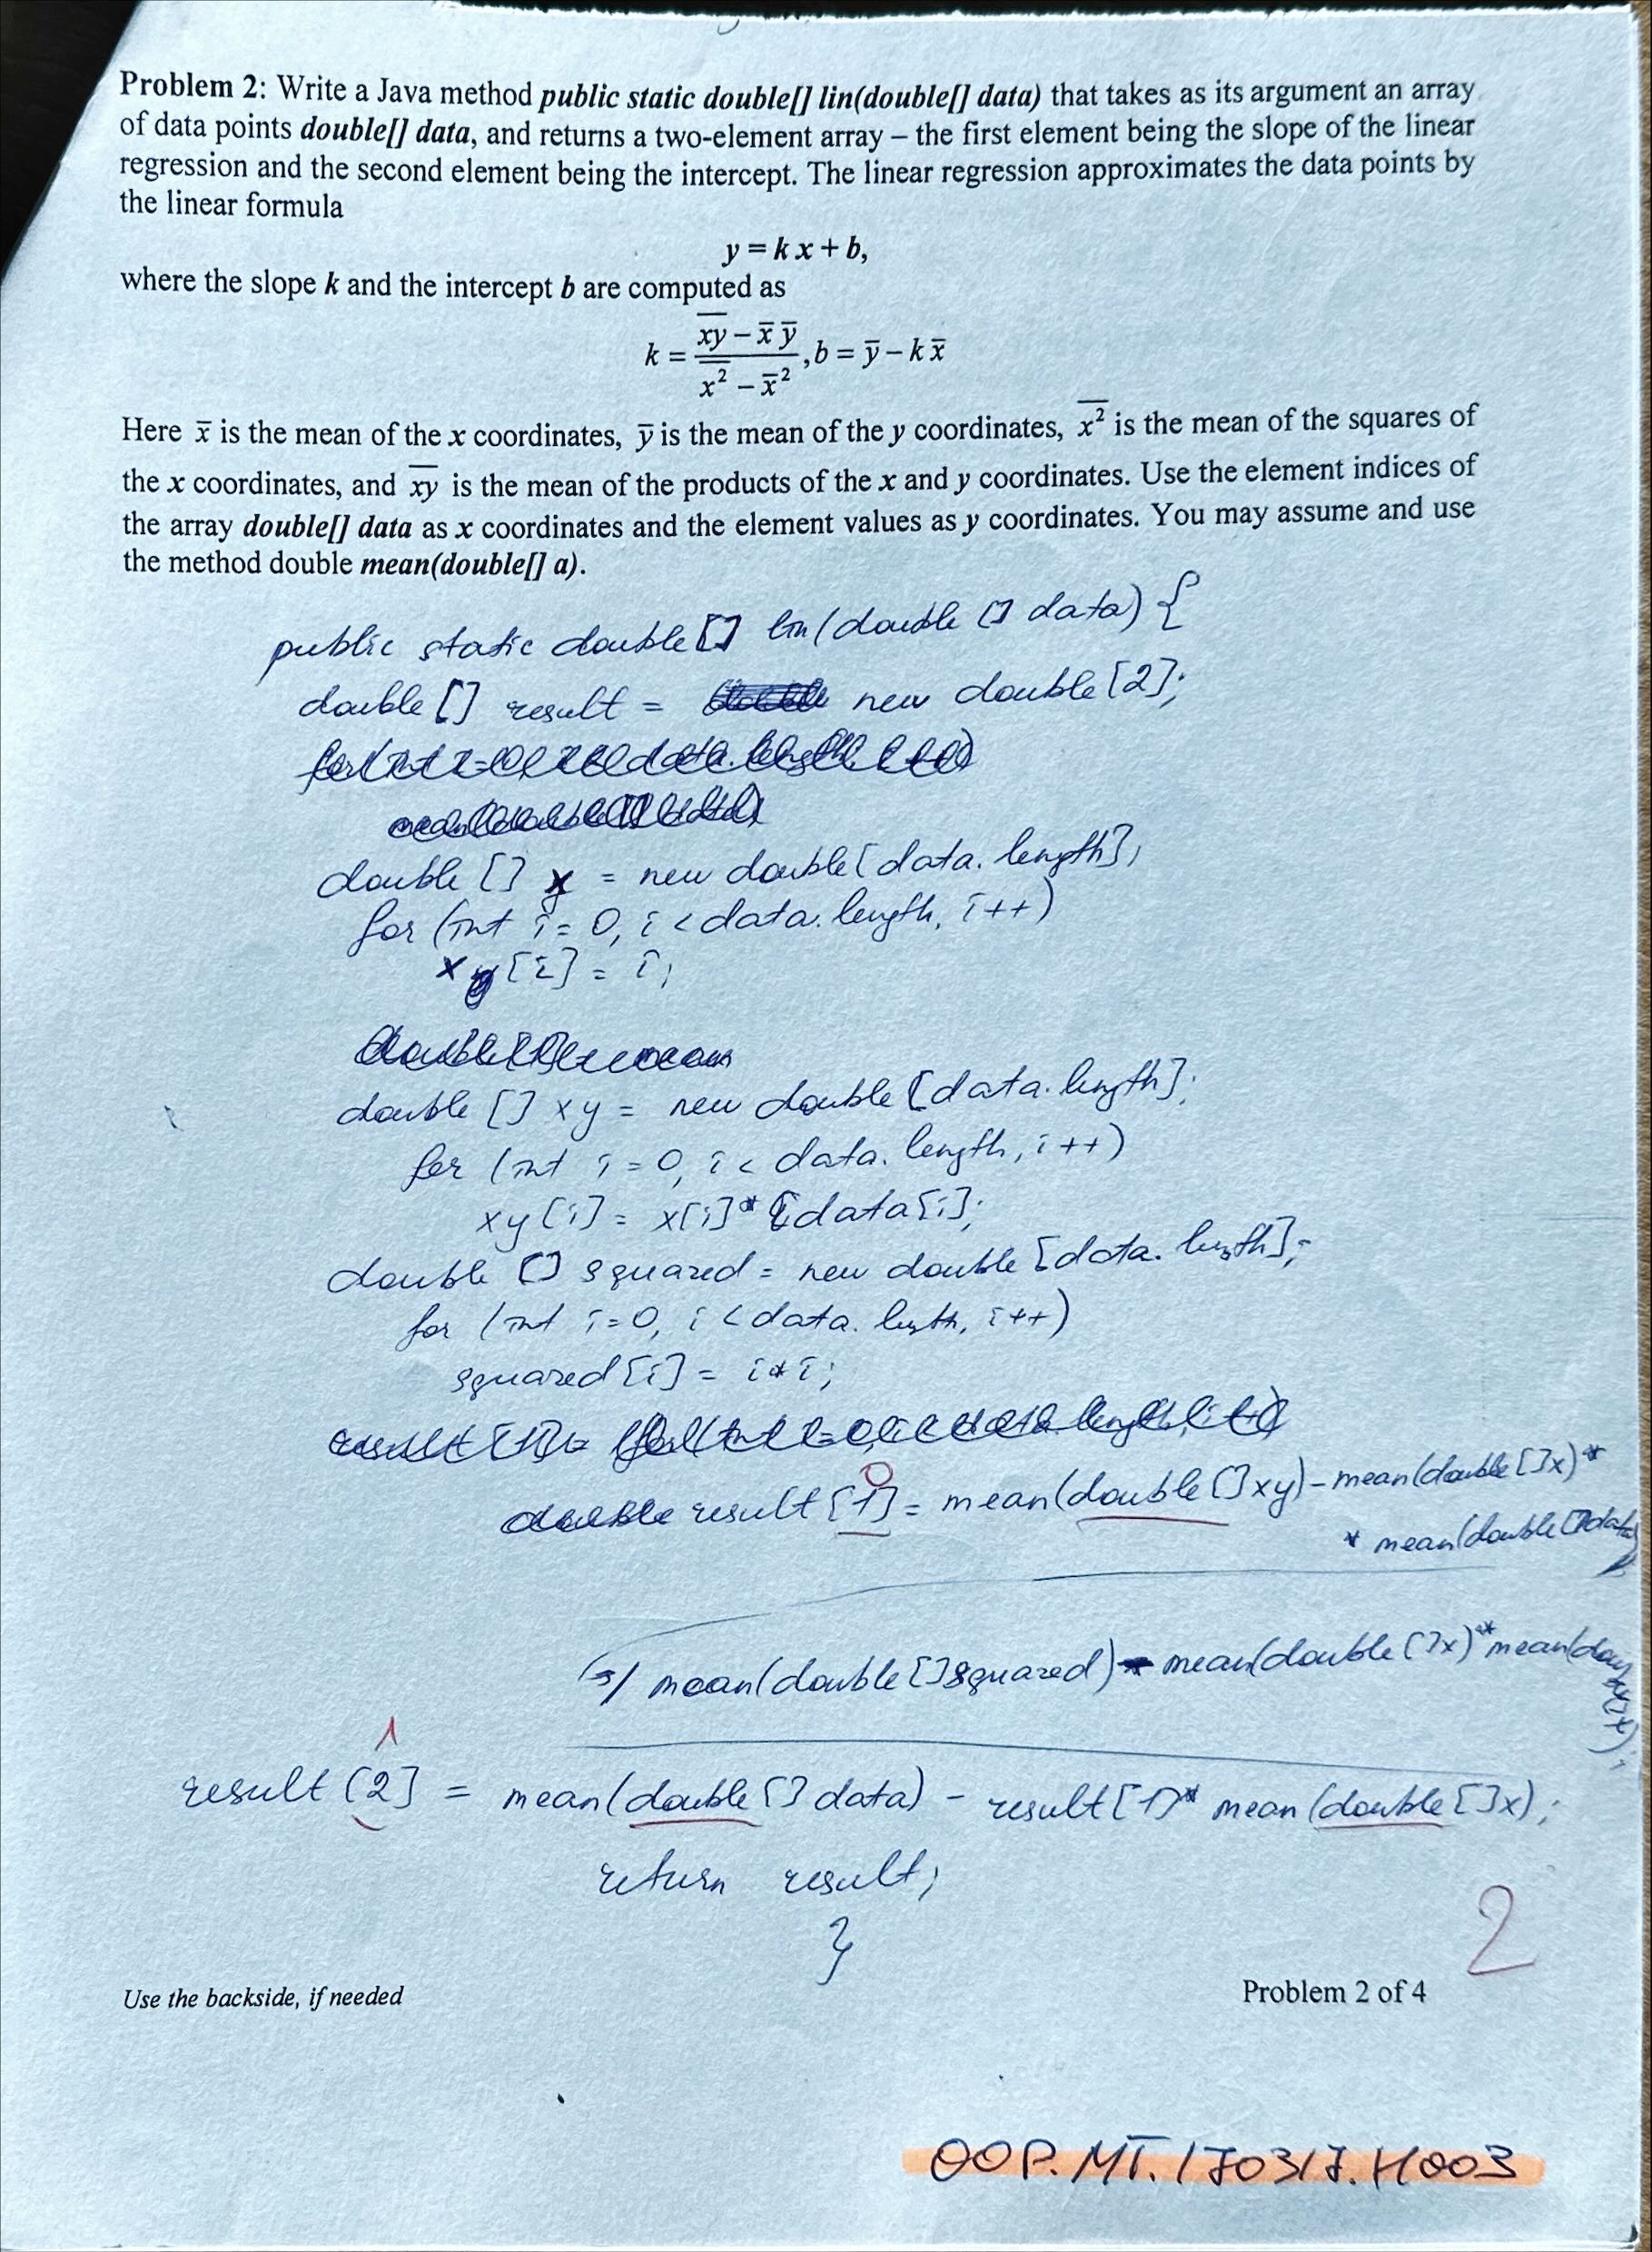 Problem 2: Write a Java method public static double[] lin(double[] data) that takes as its argument an array
of data points double[] data, and returns a two-element array – the first element being the slope of the linear
regression and the second element being the intercept. The linear regression approximates the data points by
the linear formula
y = k x + b,
where the slope k and the intercept b are computed as
k = (x̅y̅ − x̅ y̅) / (x̅²̅ − x̅²), b = y̅ − k x̅
Here x̅ is the mean of the x coordinates, y̅ is the mean of the y coordinates, x̅²̅ is the mean of the squares of
the x coordinates, and x̅y̅ is the mean of the products of the x and y coordinates. Use the element indices of
the array double[] data as x coordinates and the element values as y coordinates. You may assume and use
the method double mean(double[] a).
public static double[] lin(double [] data) {
double [] result = new double[2];
double [] x = new double[data.length];
for (int i = 0, i < data.length, i++)
x [i] = i;
double [] xy = new double [data.length];
for (int i = 0, i < data.length, i++)
xy[i] = x[i] * data[i];
double [] squared = new double [data.length];
for (int i=0, i < data.lenth, i++)
squared[i] = i*i;
0
result[1] = mean(double[]xy) - mean(double[]x) *
* mean(double[]data)
/ mean(double[]squared) - mean(double[]x) * mean(double[]x);
1
result[2] = mean(double[] data) - result[1] * mean(double[]x);
return result;
}
2
Use the backside, if needed
Problem 2 of 4
OOP.MT.170317.H003